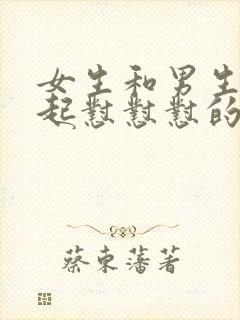 女生和男生
起怼怼怼的
蔡东藩著